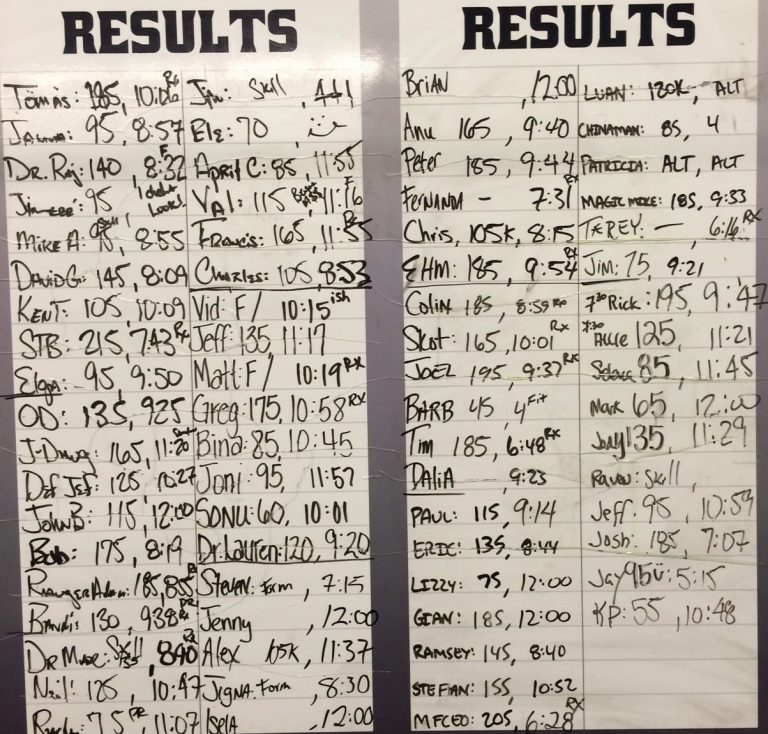 RESULTS
Tomas: 185, 10:06 Rx
95, 8:57
Dr. Raj: 140, 8:32 F
95
Mike A: 8:55
David G: 145, 8:09
Kent: 105, 10:09
STB: 215, 7:43 Rx
Elga: 95, 9:50
OD: 135, 925
J-Dawg: 165, 11:20
Def Jef: 125 10:27
John B: 115, 12:00
Bob: 175, 8:19
Ranger Adam: 185, 855
130, 938 PR
Dr Musc: Skill 840 Rx
Neil: 125, 10:47
75 PR, 11:07
Jin: Skill, 441
Ele: 70,
April C: 85, 11:55
Val: 115 11:16 F
Francis: 165, 11:55 Rx
Charles: 105, 853
Vid: F/ 10:15 ish
Jeff: 135, 11:17
Matt: F/ 10:19 RX
Greg: 175, 10:58 RX
Bina: 85, 10:45
Joni: 95, 11:57
Sonu: 60, 10:01
Dr. Lauren: 120, 9:20
Steven: Form, 7:15
Jenny, 12:00
Alex 105K, 11:37
Jigna: Form, 8:30
Isela, 12:00
RESULTS
Brian, 12:00
Anu 165, 9:40
Peter 185, 9:44
Fernanda - 7:31 Rx
Chris, 105K, 8:15
EHM: 185, 9:54 Rx
Colin 185, 8:59 Rx
Skot: 165, 10:01 Rx
Joel 195, 9:37 Rx
Barb 45, 4 Fit
Tim 185, 6:48 Rx
Dalia 9:23
Paul: 115, 9:14
Eric: 135, 8:44
Lizzy: 75, 12:00
Gian: 185, 12:00
Ramsey: 145, 8:40
Stefian: 155, 10:52
MFCEO: 205, 6:28 RX
Luan: 120K, ALT
Chinaman: 85, 4
Patricia: ALT, ALT
Magic Mike: 185, 9:33
Terey: —, 6:16 RX
Jim: 75, 9:21
7:30 Rick: 195, 9:47
7:30 125, 11:21
85, 11:45
Mark 65, 12:00
135, 11:29
Skill,
Jeff: 95, 10:59
Josh: 185, 7:07
Jay 95: 5:15
KP: 55, 10:48